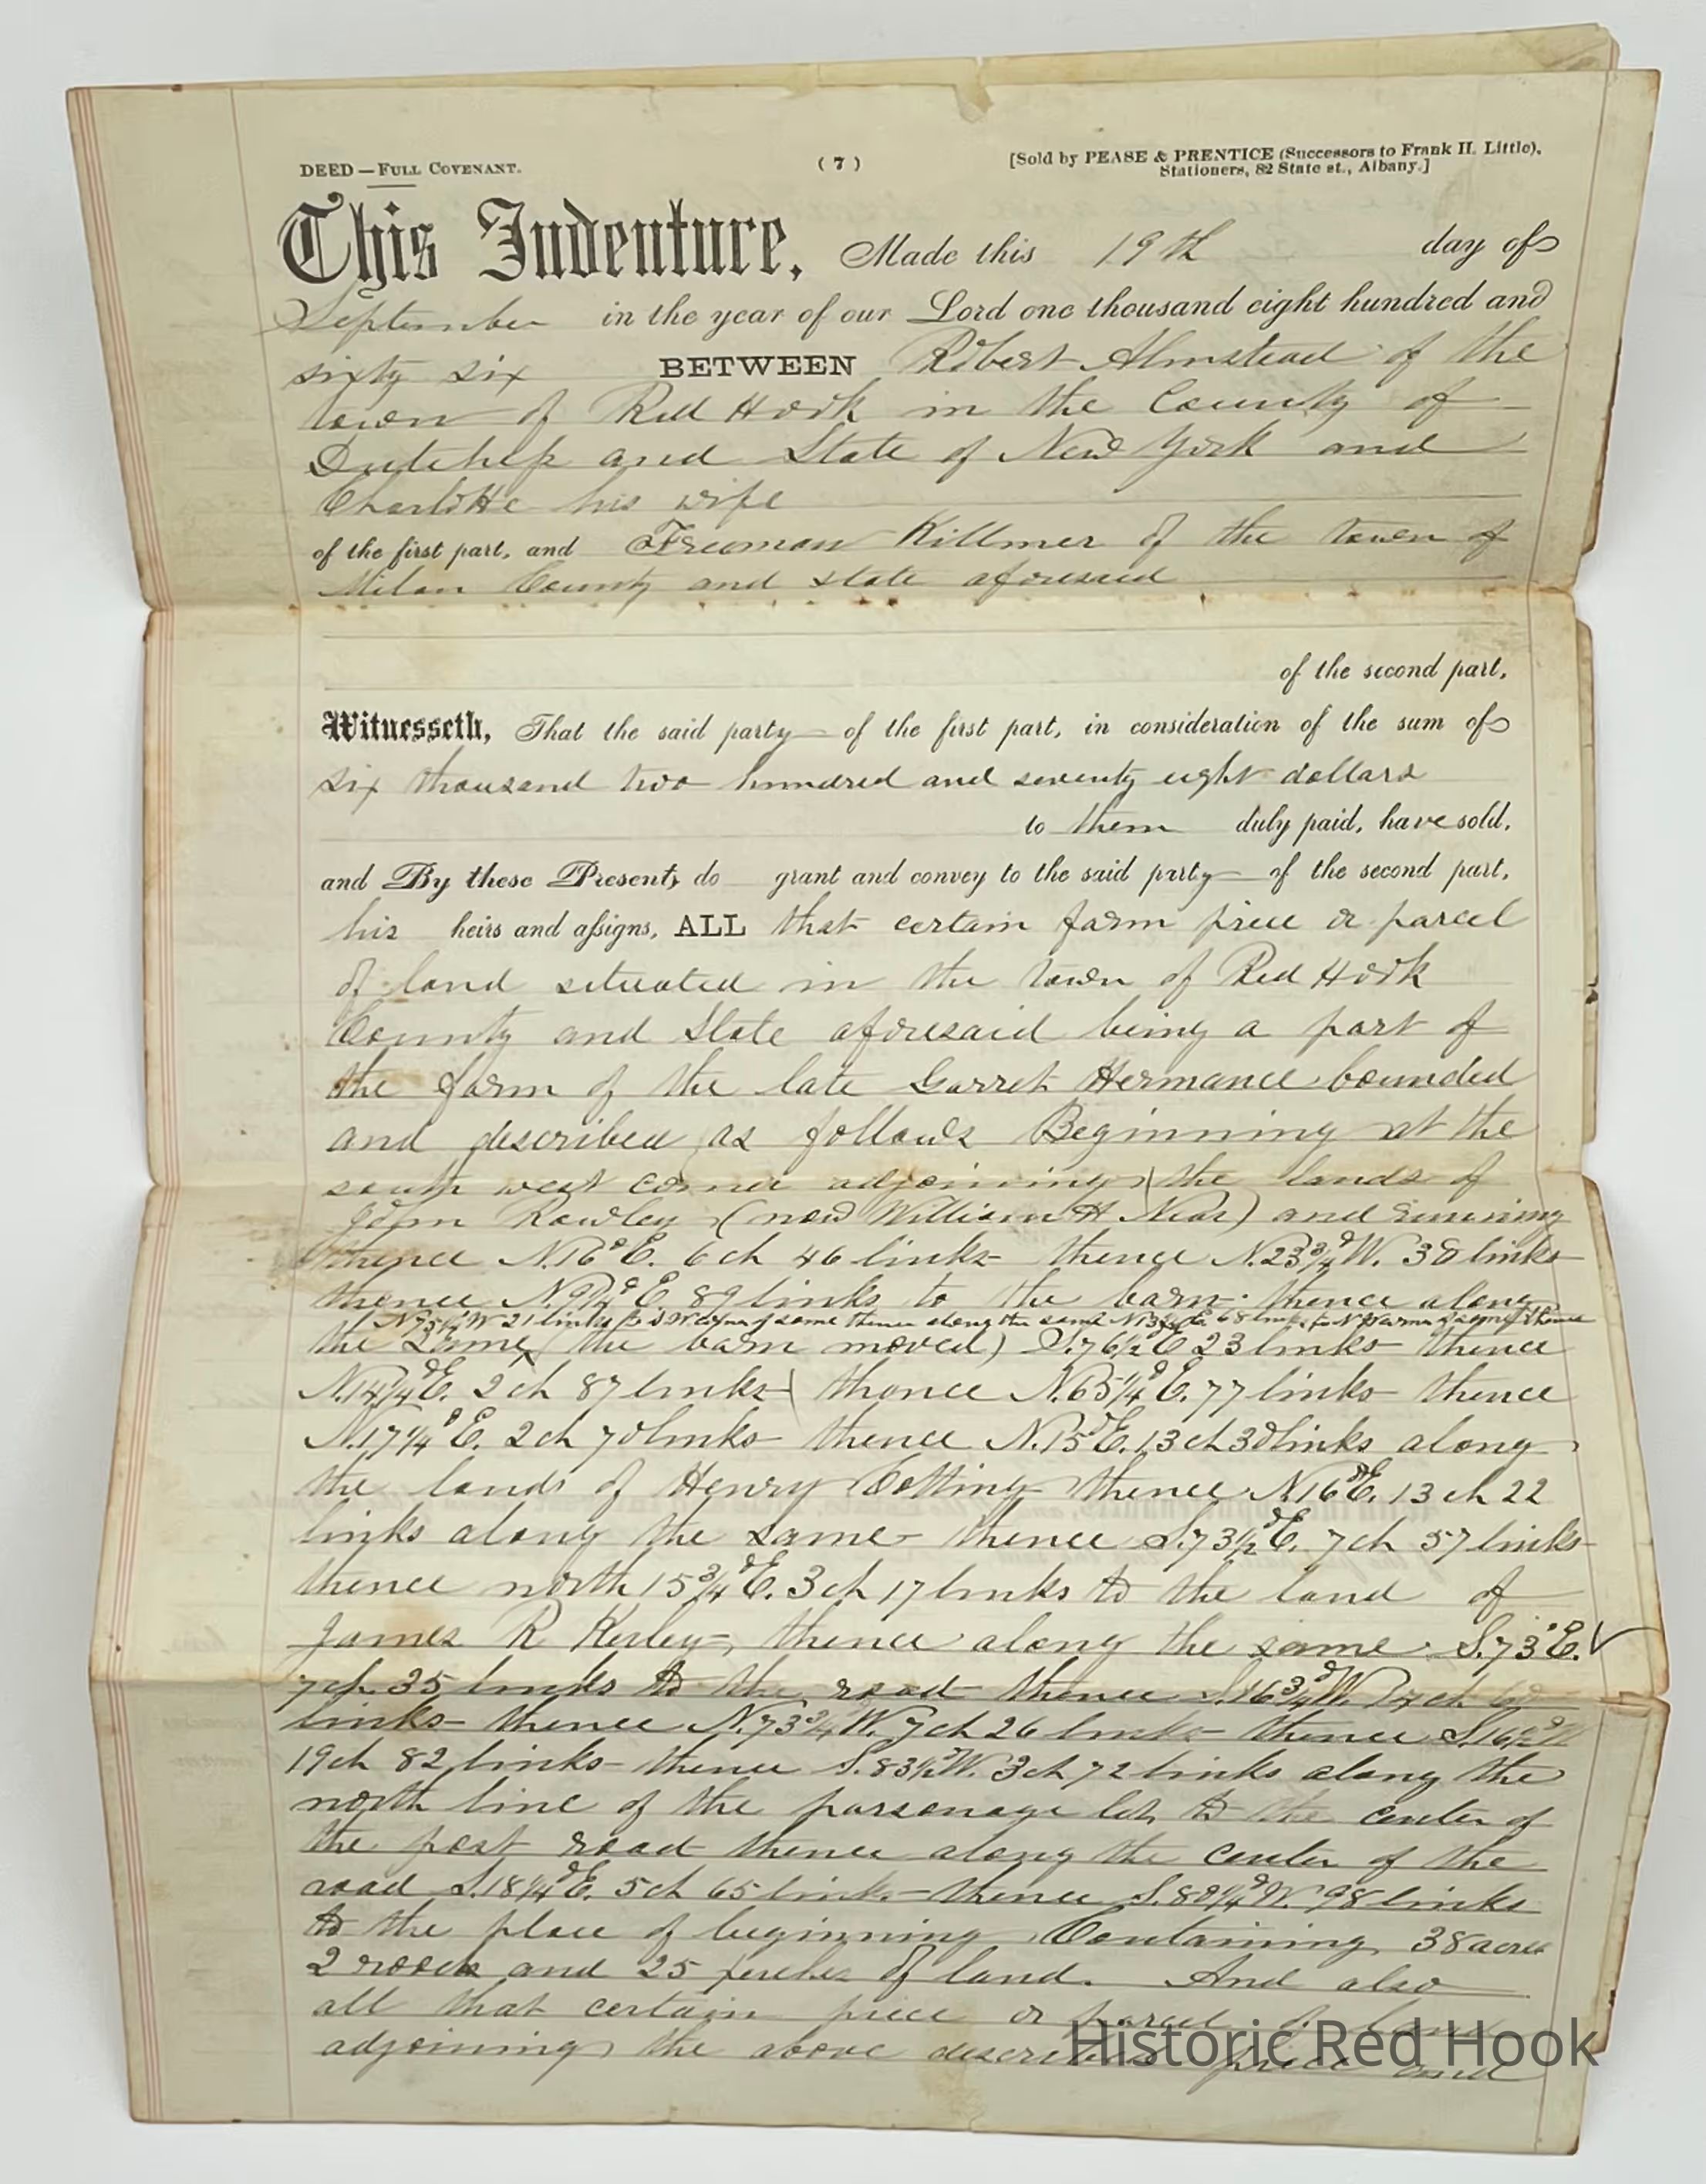 DEED—FULL COVENANT.
(7)
[Sold by PEASE & PRENTICE (Successors to Frank H. Little),
Stationers, 82 State st., Albany.]
This Indenture, Made this 19th day of
September in the year of our Lord one thousand eight hundred and
sixty six BETWEEN Robert Almstead of the
town of Red Hook in the County of
Dutchess and State of New York and
Charlotte his wife
of the first part, and Freeman Killmer of the town of
Milan County and state aforesaid
of the second part,
Witnesseth, That the said party of the first part, in consideration of the sum of
six thousand two hundred and seventy eight dollars
to them duly paid, have sold,
and By these Presents do grant and convey to the said party of the second part,
his heirs and assigns, ALL that certain farm piece or parcel
of land situated in the town of Red Hook
County and State aforesaid being a part of
the farm of the late Garret Hermance bounded
and described as follows Beginning at the
south west corner adjoining the lands of
John Rowley (now William H Near) and running
thence N.16°E. 6 ch 46 links thence N.23¾°W. 38 links
thence E 89 links to the barn thence along
21 links to S.W. corner of same thence along the same 68 links to N.W. corner of same thence
the same (the barn moved) S.76½°E 23 links thence
N.14¾°E. 2 ch 87 links thence N.65¼°E. 77 links thence
N.17¼°E. 2 ch 70 links thence N.15°E. 13 ch 38 links along
the lands of Henry Cotting thence N16°E. 13 ch 22
links along the same thence S.73½°E. 7 ch 57 links
thence north 15¾°E. 3 ch 17 links to the land of
James R Kerley thence along the same S.73°E.
7 ch 35 links to the road thence S.16¾°W. ch
links thence N.73¾°W. 7 ch 26 links thence S.16½°W
19 ch 82 links thence S.83½°W. 3 ch 72 links along the
north line of the parsonage lot to the center of
the post road thence along the center of the
road S.18¼°E. 5 ch 65 links thence S.89¼°W. 98 links
to the place of beginning Containing 38 acres
2 roods and 25 perches of land. And also
all that certain piece or parcel of land
adjoining the above described piece and
Historic Red Hook